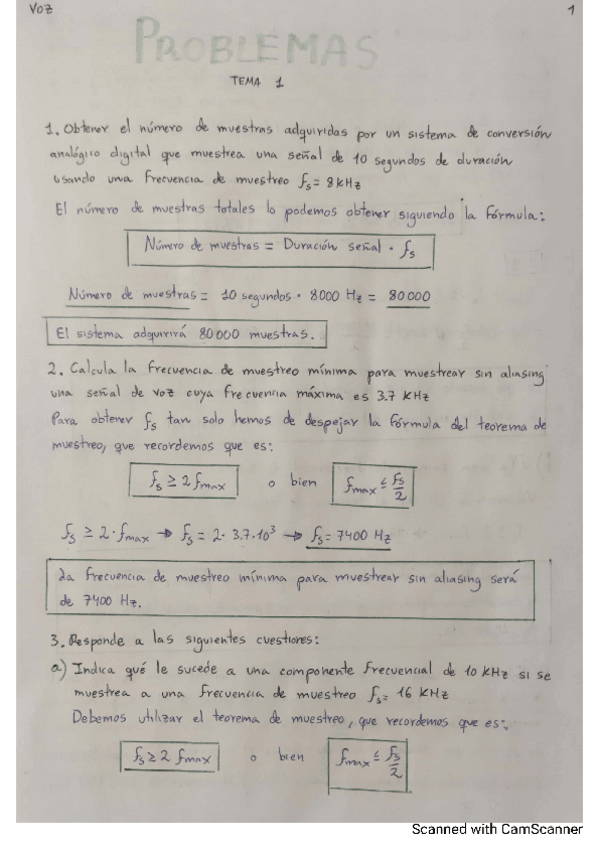 VOZ
1
PROBLEMAS
TEMA 1
1. Obtener el número de muestras adquiridas por un sistema de conversión
analógico digital que muestrea una señal de 10 segundos de duración
usando una frecuencia de muestreo fs = 8 kHz
El número de muestras totales lo podemos obtener siguiendo la fórmula:
Número de muestras = Duración señal · fs
Número de muestras = 10 segundos · 8000 Hz = 80000
El sistema adquirirá 80000 muestras.
2. Calcula la frecuencia de muestreo mínima para muestrear sin aliasing
una señal de voz cuya frecuencia máxima es 3.7 KHz
Para obtener fs tan solo hemos de despejar la fórmula del teorema de
muestreo, que recordemos que es:
fs ≥ 2 fmax o bien fmax ≤ fs/2
fs ≥ 2 · fmax → fs = 2 · 3.7 · 10³ → fs = 7400 Hz
La frecuencia de muestreo mínima para muestrear sin aliasing será
de 7400 Hz.
3. Responde a las siguientes cuestiones:
a) Indica qué le sucede a una componente frecuencial de 10 KHz si se
muestrea a una frecuencia de muestreo fs = 16 KHz
Debemos utilizar el teorema de muestreo, que recordemos que es:
fs ≥ 2 fmax o bien fmax ≤ fs/2
Scanned with CamScanner